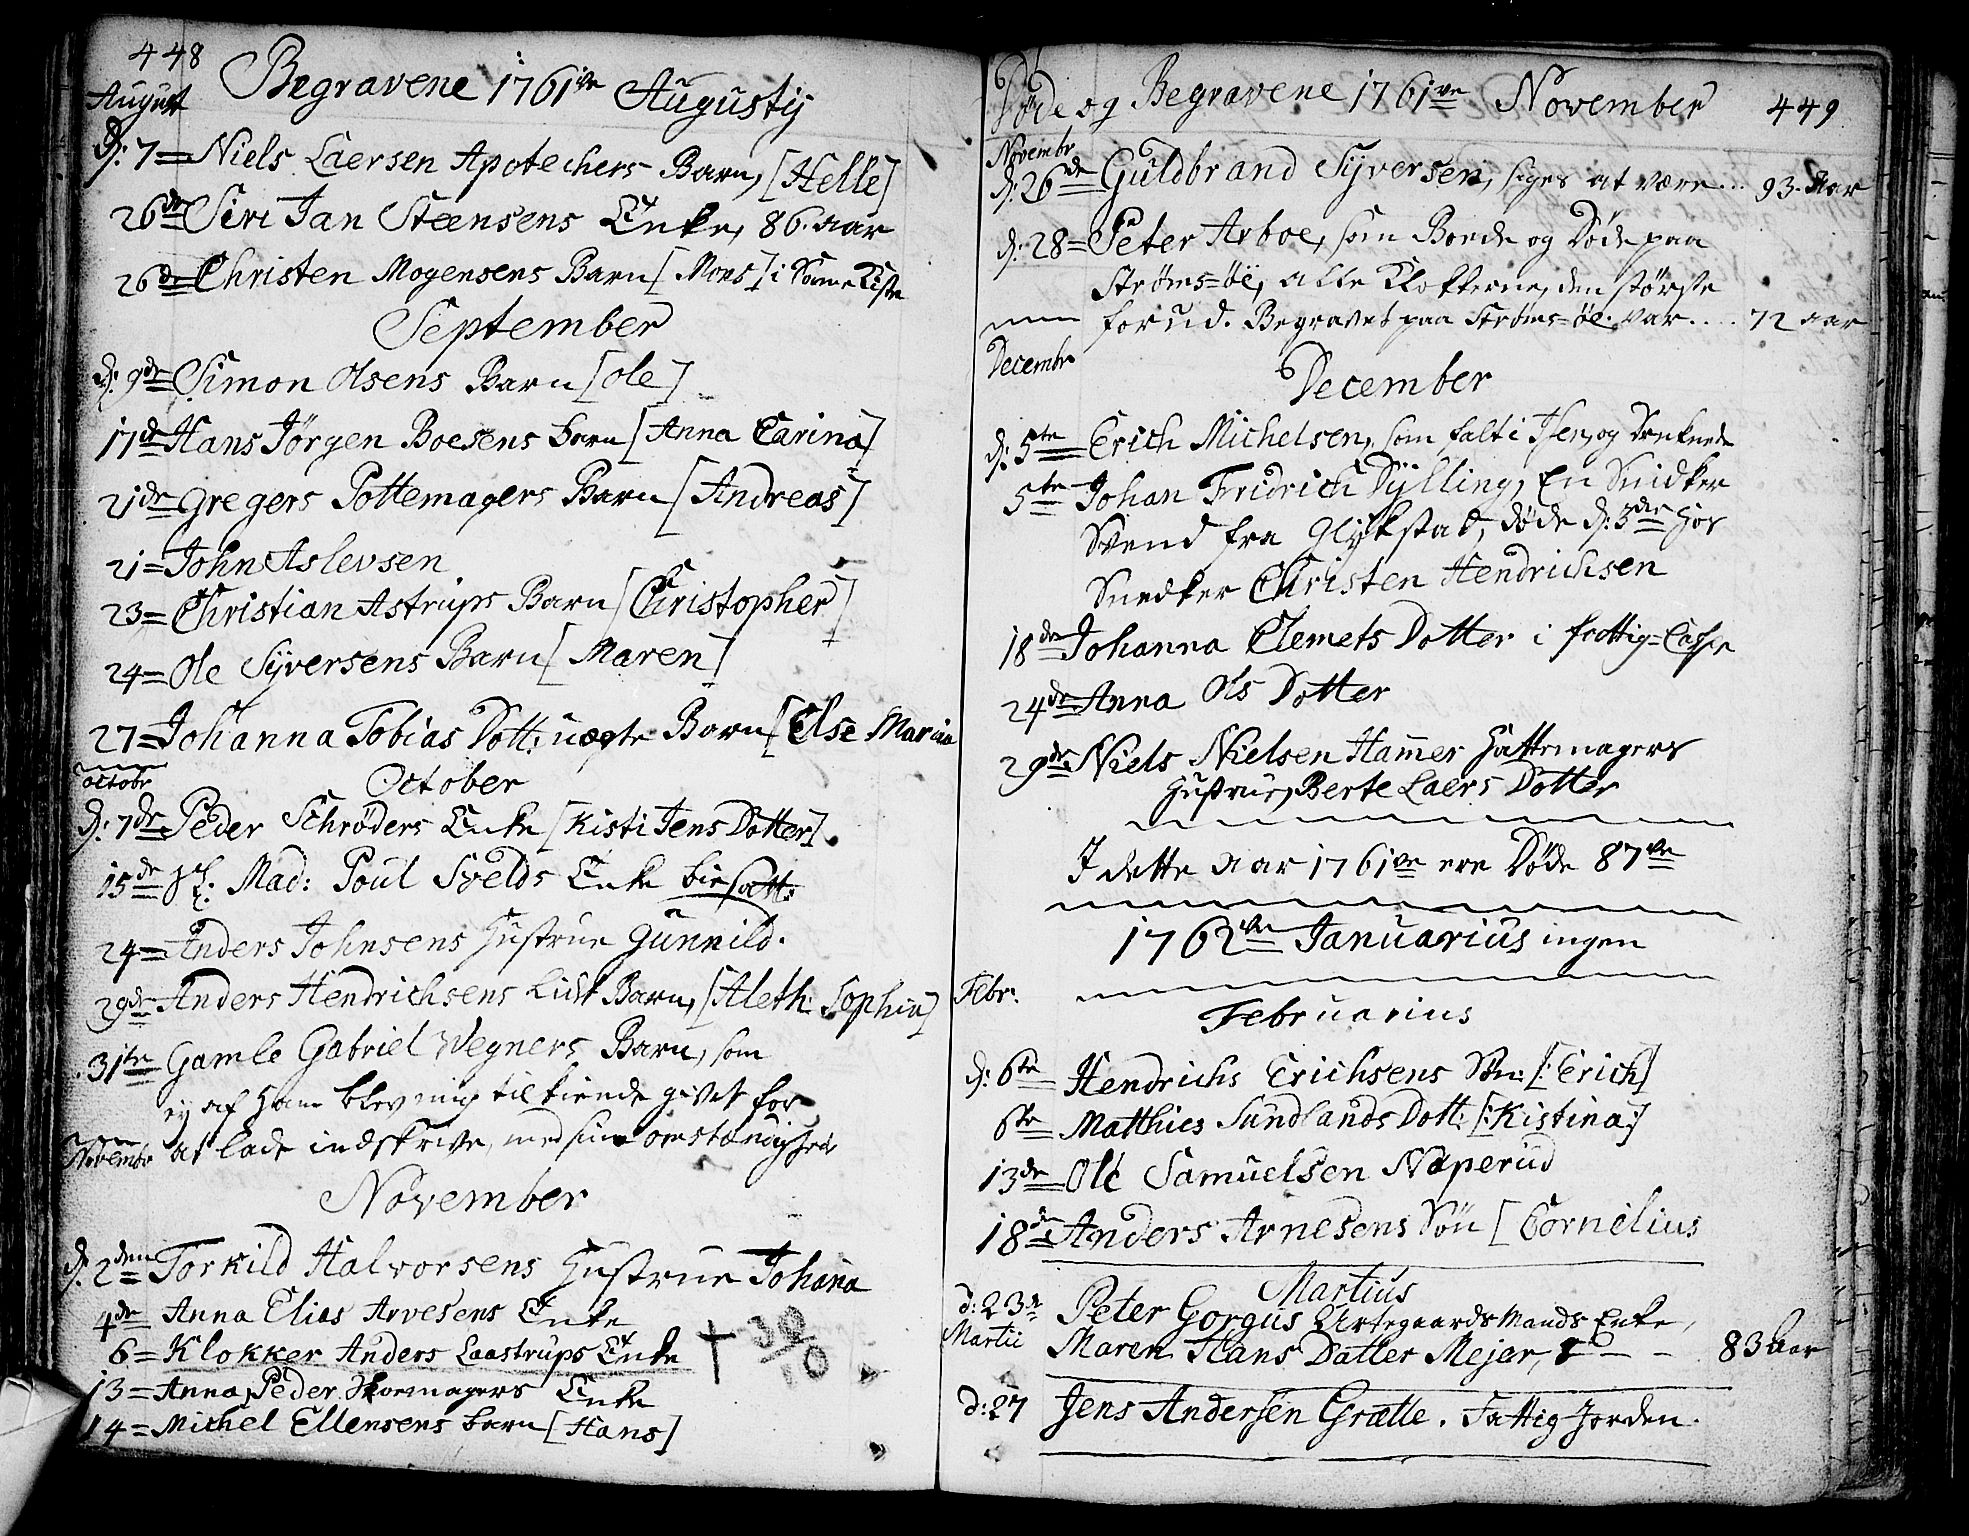 448
Begravene 1761ve Augustij
August
d: 7= Niels Laersen Apotechers Barn, [Helle]
26de Siri Jan Steensens Enke, 86. aar
26de Christen Mogensens Barn [Mons] i Samme Kiste
September
d: 9de Simon Olsens Barn [Ole]
17de Hans Jörgen Boesens barn [Anna Carina]
21de Gregers Pottemagers Barn [Andreas]
21= John Aslevsen
23= Christian Astrups Barn [Christopher]
24= Ole Syversens Barn [Maren]
27= Johanna Tobias Dott: uægte Barn [Else Maria
octobr
October
d: 7de Peder Schrøders Enke [Kisti Jens Dotter].
15de Sl. Mad: Poul Svelds Enke biesatt:
24= Anders Johnsens Hustrue Gunnild.
29de Anders Hendrichsens Lidt Barn, [Aleth: Sophia]
31te Gamle Gabriel Wegners Barn, som
ej af ham blev mig tilkiende givet for
at lade indskrive, med sine omstændigheder
Novembr
November
d. 2den Torkild Halvorsens Hustrue Johana
4de Anna Elias Arvesens Enke
6= Klokker Anders Laastrups Enke
13= Anna Peder Skomagers Enke
14= Michel Ellensens barn [Hans]
Døde og Begravene 1761ve November 449
Novembr
d: 26de Guldbrand Syversen, siges at være... 93. Aar
d: 28= Peter Arboe, som Boede og Døde paa
Strøms=øe, alle Klokkerne, den største
forud. Begravet paa Strøms=øe. var.... 72 aar
Decembr
December
d: 5te Erich Michelsen, som falt i Isen, og Druknede
5te Johan Fridrich Dylling, En Snidker
Svend fra Glykstad, døde d: 3die hos
Snedker Christen Hendrichsen
18de Johanna Clemets Dotter i fattig=Casse
24de Anna Ols Dotter
29de Niels Nielsen Hamer Hattemagers
Hustrue, Berte Laers Dotter
I dette aar 1761ve ere Døde 87ve
1762ve Januarius ingen
Febr:
Februarius
d: 6te Hendrichs Erichsens Søn: [:Erich]
6te Matthies Sundlands Dott: [:Kistina:]
13de Ole Samuelsen Næperud
18de Anders Arnesens Søn [Cornelius
Martius
d: 23de Peter Gorgus Urtegaards Mands Enke,
Martii Maren Hans Datter Mejer, - - - 83 Aar
d: 27 Jens Andersen Grætte. Fattig Jorden.